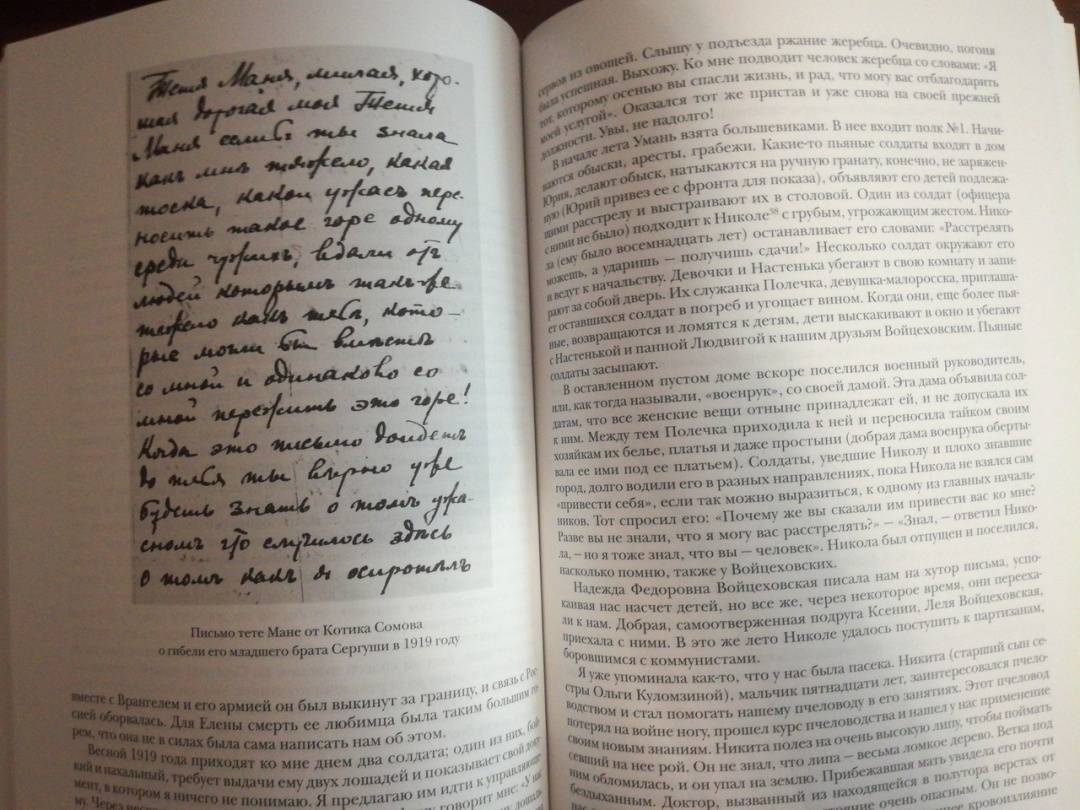 Тетя Маня, милая, хоро-
шая дорогая моя Тетя
Маня еслибъ ты знала
какъ мнѣ тяжело, какая
тоска, какой ужасъ пере-
носить такое горе одному
среди чужихъ, вдали отъ
людей которымъ такъ-же
тяжело какъ тебѣ, кото-
рые могли бы вмѣстѣ
со мной и одинаково со
мной пережить это горе!
Когда это письмо дойдетъ
до тебя ты вѣрно уже
будешь знать о томъ ужа-
сномъ что случилось здѣсь
о томъ какъ я осиротѣлъ
Письмо тете Мане от Котика Сомова
о гибели его младшего брата Сергуши в 1919 году
вместе с Врангелем и его армией он был выкинут за границу, и связь с Рос-
сией оборвалась. Для Елены смерть ее любимца была таким большим го-
рем, что она не в силах была сама написать нам об этом.
Весной 1919 года приходят ко мне днем два солдата; один из них, бой-
кий и нахальный, требует выдачи ему двух лошадей и показывает свой доку-
мент, в котором я ничего не понимаю. Я предлагаю им идти к управляюще-
му. Через
говорит мне: «У нас
сервов из овощей. Слышу у подъезда ржание жеребца. Очевидно, погоня
была успешная. Выхожу. Ко мне подводит человек жеребца со словами: «Я
тот, которому осенью вы спасли жизнь, и рад, что могу вас отблагодарить
моей услугой». Оказался тот же пристав и уже снова на своей прежней
должности. Увы, не надолго!
В начале лета Умань взята большевиками. В нее входит полк №1. Начи-
наются обыски, аресты, грабежи. Какие-то пьяные солдаты входят в дом
Юрия, делают обыск, натыкаются на ручную гранату, конечно, не заряжен-
ную (Юрий привез ее с фронта для показа), объявляют его детей подлежа-
щими расстрелу и выстраивают их в столовой. Один из солдат (офицера
с ними не было) подходит к Николе⁵⁸ с грубым, угрожающим жестом. Нико-
ла (ему было восемнадцать лет) останавливает его словами: «Расстрелять
можешь, а ударишь — получишь сдачи!» Несколько солдат окружают его
и ведут к начальству. Девочки и Настенька убегают в свою комнату и запи-
рают за собой дверь. Их служанка Полечка, девушка-малоросска, приглаша-
ет оставшихся солдат в погреб и угощает вином. Когда они, еще более пья-
ные, возвращаются и ломятся к детям, дети выскакивают в окно и убегают
с Настенькой и панной Людвигой к нашим друзьям Войцеховским. Пьяные
солдаты засыпают.
В оставленном пустом доме вскоре поселился военный руководитель,
или, как тогда называли, «военрук», со своей дамой. Эта дама объявила сол-
датам, что все женские вещи отныне принадлежат ей, и не допускала их
к ним. Между тем Полечка приходила к ней и переносила тайком своим
хозяйкам их белье, платья и даже простыни (добрая дама военрука оберты-
вала ее ими под ее платьем). Солдаты, уведшие Николу и плохо знавшие
город, долго водили его в разных направлениях, пока Никола не взялся сам
«привести себя», если так можно выразиться, к одному из главных началь-
ников. Тот спросил его: «Почему же вы сказали им привести вас ко мне?
Разве вы не знали, что я могу вас расстрелять?» — «Знал, — ответил Нико-
ла, — но я тоже знал, что вы — человек». Никола был отпущен и поселился,
насколько помню, также у Войцеховских.
Надежда Федоровна Войцеховская писала нам на хутор письма, успо-
каивая нас насчет детей, но все же, через некоторое время, они перееха-
ли к нам. Добрая, самоотверженная подруга Ксении, Леля Войцеховская,
приехала с ними. В это же лето Николе удалось поступить к партизанам,
боровшимся с коммунистами.
Я уже упоминала как-то, что у нас была пасека. Никита (старший сын се-
стры Ольги Куломзиной), мальчик пятнадцати лет, заинтересовался пчело-
водством и стал помогать нашему пчеловоду в его занятиях. Этот пчеловод
потерял на войне ногу, прошел курс пчеловодства и нашел у нас применение
своим новым знаниям. Никита полез на очень высокую липу, чтобы поймать
севший на нее рой. Он не знал, что липа – весьма ломкое дерево. Ветка под
ним обломилась, и он упал на землю. Прибежавшая мать увидела его почти
бездыханным. Доктор, вызванный из находящейся в полутора верстах от
нас
очень опасным. Он не позво-
кровоизлияние